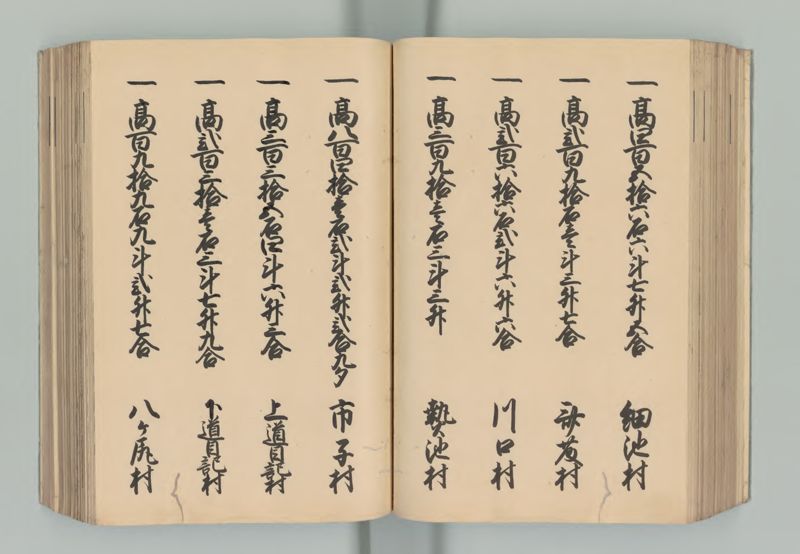 一高四百五拾六石六斗七升五合 細池村
一高弐百九拾石壱斗三升七合
一高弐百六拾六石弐斗六升六合 川口村
一高三百九拾壱石三斗三升 勢池村
一高八百四拾壱石弐斗弐升弐合九夕 市子村
一高三百三拾五石四斗六升三合 上道目記村
一高弐百三拾壱石三斗七升九合 下道目記村
一高百九拾九石九斗弐升七合 八ケ尻村